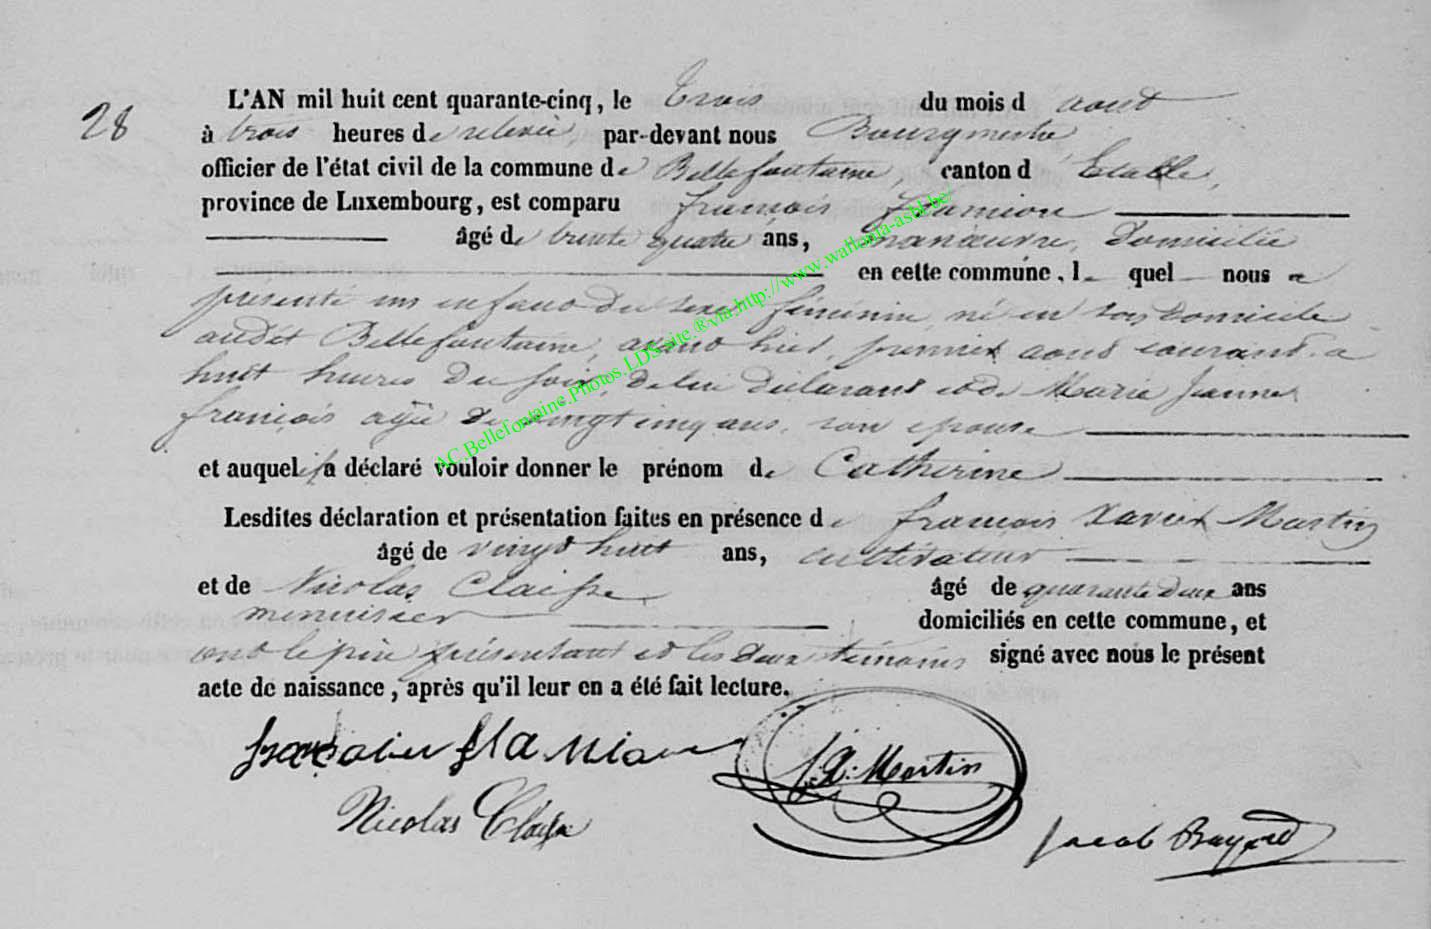 28
L'AN mil huit cent quarante-cinq, le trois du mois d août
à trois heures de relevée, par-devant nous Bourgmestre,
officier de l'état civil de la commune de Bellefontaine, canton d Etalle,
province de Luxembourg, est comparu françois flamion
âgé de trente quatre ans, manœuvre, domicilié
en cette commune, le quel nous a
présenté un enfant du sexe féminin, né en son domicile
audit Bellefontaine, avant hier, premier aout courant, a
huit heures du soir, de lui déclarant et de Marie Jeanne
françois agée de vingt cinq ans, son epouse
et auquel il a déclaré vouloir donner le prénom de Catherine
Lesdites déclaration et présentation faites en présence de françois Xavier Martin
âgé de vingt huit ans, cultivateur
et de Nicolas Claisse âgé de quarante deux ans
menuisier domiciliés en cette commune, et
ont le père présentant et les deux témoins signé avec nous le présent
acte de naissance, après qu'il leur en a été fait lecture.
flamion f. X. Martin
Nicolas Claisse
Jacob Bayard
AC.Bellefontaine.Photos.LDS.site.®via.http://www.wallonia-asbl.be/